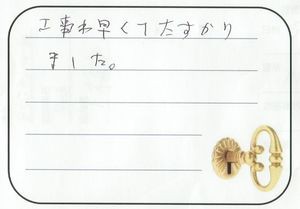 工事も早くてたすかり
ました。